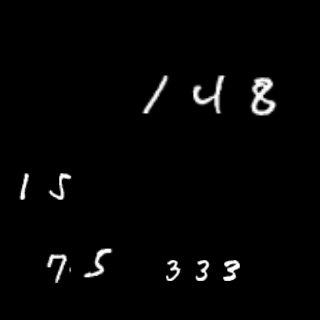 148
15
75 333